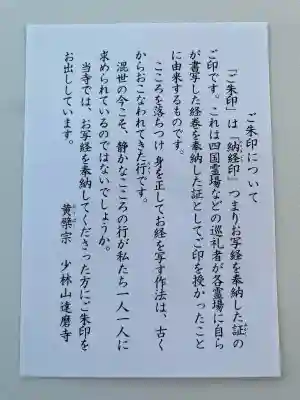 ご朱印について
「ご朱印」は『納経印』つまりお写経を奉納した証の
ご印です。これは四国霊場などの巡礼者が各霊場に自ら
が書写した経巻を奉納した証としてご印を授かったこと
に由来するものです。
こころを落ちつけ身を正してお経を写す作法は、古く
からおこなわれてきた行です。
混世の今こそ、静かなこころの行が私たち一人一人に
求められているのではないでしょうか。
当寺では、お写経を奉納してくださった方にご朱印を
お出ししています。
黄檗宗 少林山達磨寺